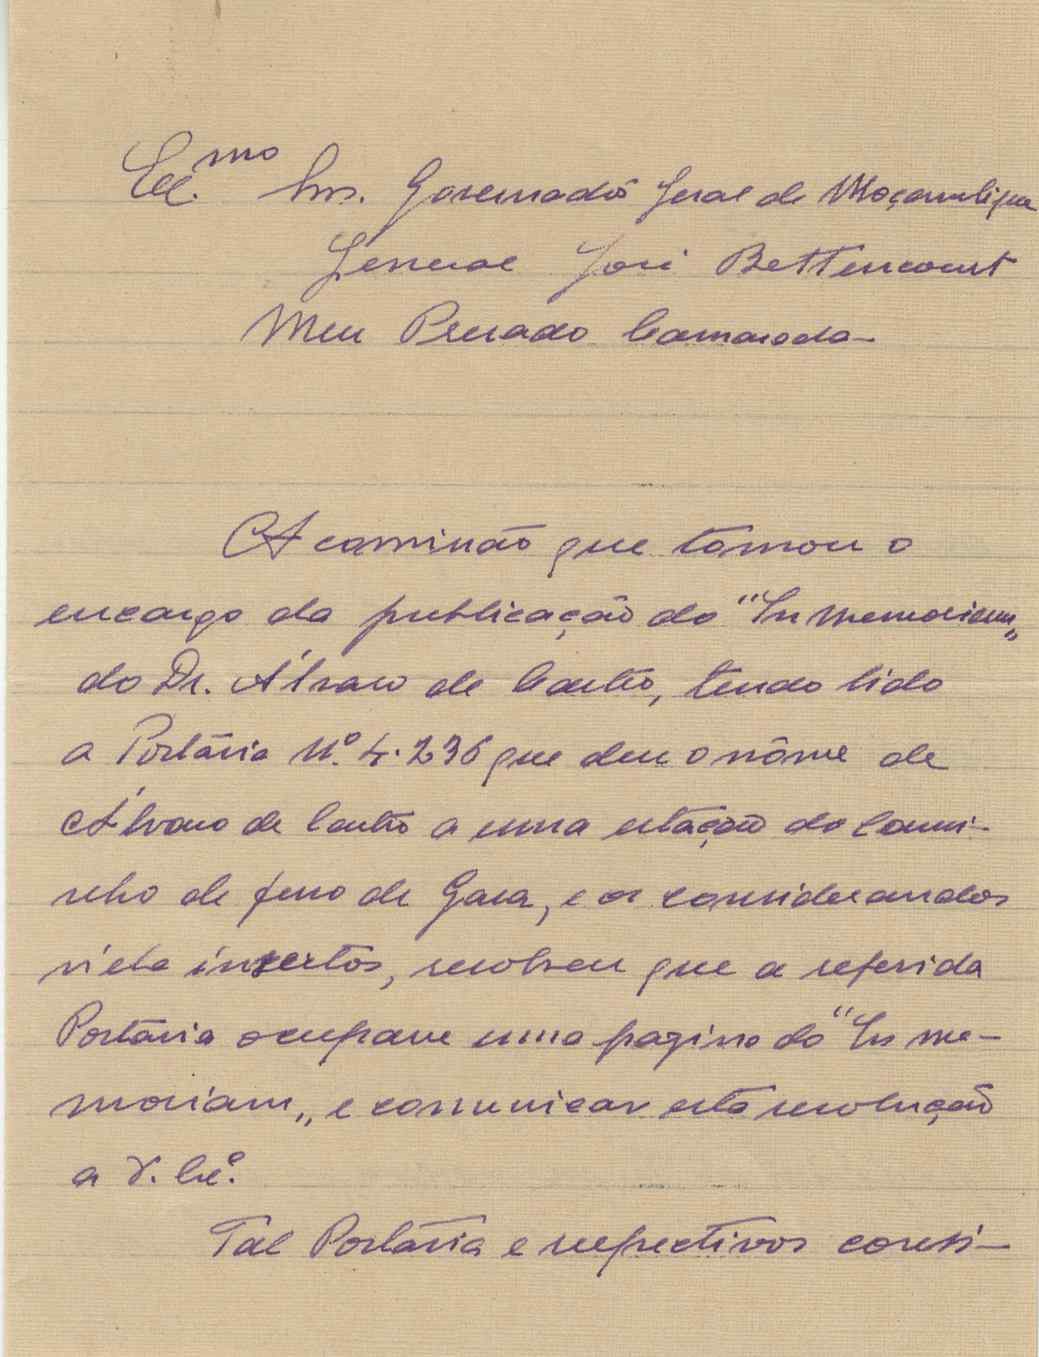 Ex.mo Snr. Governadôr Geral de Moçambique
General José Bettencourt
Meu Presado Camarada
A comissão que tômou o
encargo da publicação do "In Memoriam"
do Dr. Álvaro de Castro, tendo lido
a Portária Nº. 4.236 que deu o nôme de
Álvaro de Castro a uma estação do Cami-
nho de ferro de Gaza, e os considerandos
nela insertos, resolveu que a referida
Portária ocupasse uma pagina do "In me-
moriam„ e comunicar esta resolução
a V. Exª.
Tal Portária e respectivos consi-